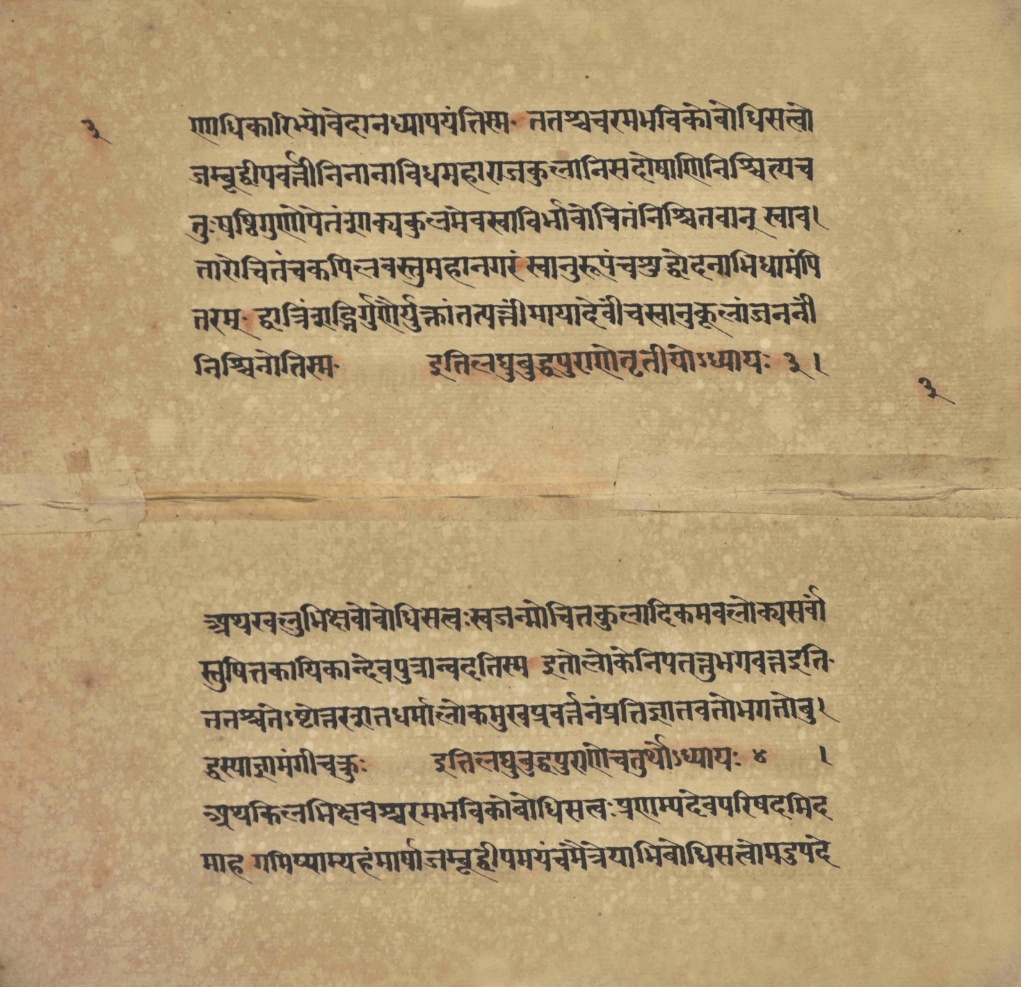 ३
णाधिकारिभ्योवेदानध्यापयंतिस्म· ततश्चचरमभविकोबोधिसत्वो
जम्बूद्वीपवर्त्तीनिनानाविधमहाराजकुलानिसदोषाणिनिश्चित्यच
तुःषष्ठिगुणोपेतंशाक्यकुलमेवस्वाविर्भावोचितंनिश्चितवान् स्वाव।
तारोचितंचकपिलवस्तुमहानगरं स्वानुरूपंचशुद्धोदनाभिधामंपि
तरम्· द्वात्रिंशद्भिर्गुणैर्युक्तांतत्पत्नींमायादेवींचस्वानुकूलांजननीं
निश्चिनोतिस्म· इतिलघुबुद्धपुराणेतृतीयोऽध्यायः ३ ।
३
अथखलुभिक्षवोबोधिसत्वःस्वजन्मोचितकुलादिकमवलोक्यसर्वां
स्तुषितकायिकान्देवपुत्रान्वदतिस्म इतोलोकेनिपतन्नुभगवन्नइति·
ततश्चतेऽष्टोत्तरशतधर्मालोकमुखप्रवर्त्तनंप्रतिज्ञातवतोभगतोबु।
द्धस्याज्ञामंगीचक्रुः इतिलघुबुद्धपुराणेचतुर्थोऽध्यायः ४ ।
अथकिलभिक्षवश्चरमभविकोबोधिसत्वःप्रणम्यदेवपरिषदमिद
माह गमिष्याम्यहंमार्षाजम्बूद्वीपमयंचमैत्रेयाभिबोधिसत्वोमदुपदे